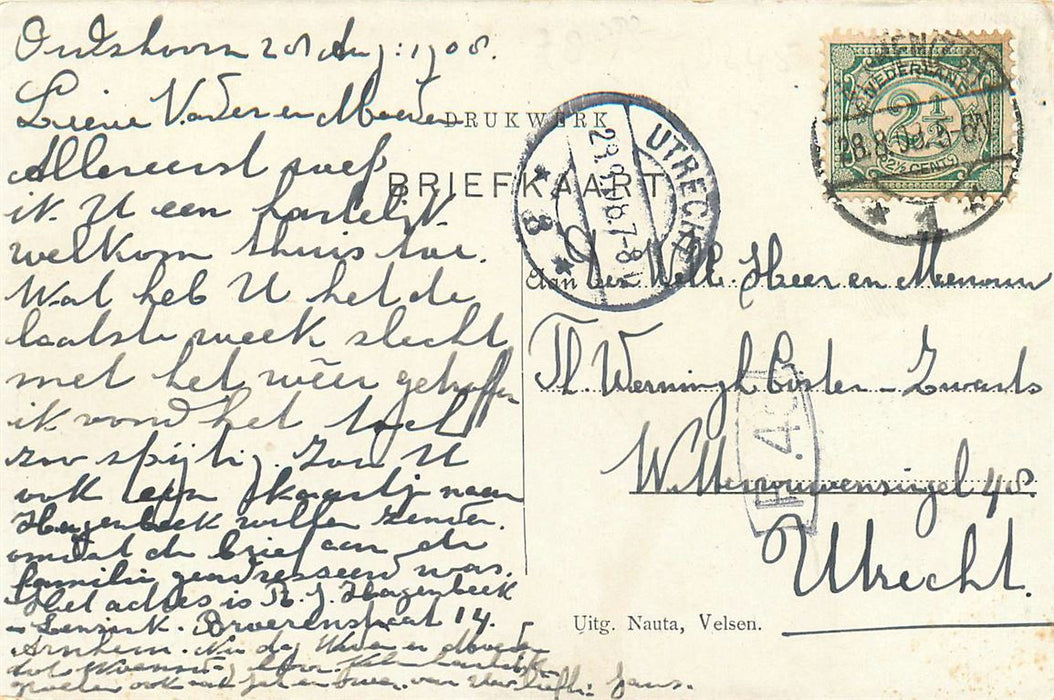 Oudshoorn 28 Aug: 1908.
Lieve Vader en Moeder
Allereerst roep
ik U een hartelijk
welkom thuis toe.
Wat heb U het de
laatste week slecht
met het wêer getroffen
ik vond het toch
zoo spijtig. Zou U
ook een kaartje naar
Hagenbeek willen zenden.
omdat de brief aan de
familie geadresseerd was.
Het adres is Th. J. Hagenbeek
- Lensink. Broerenstraat 14.
Arnhem. Nu dag Vader en Moeder
tot
ook van Uw liefh: Jans.
DRUKWERK
BRIEFKAART
UTRECHT
29.8.08 7-8
8
NEDERLAND
2½
2½ CENT
28.8.08
1
Aan den WelE. Heer en Mevrouw
Th. Werningh Coster - Zwarts
Wittevrouwensingel 48.
Utrecht.
Uitg. Nauta, Velsen.